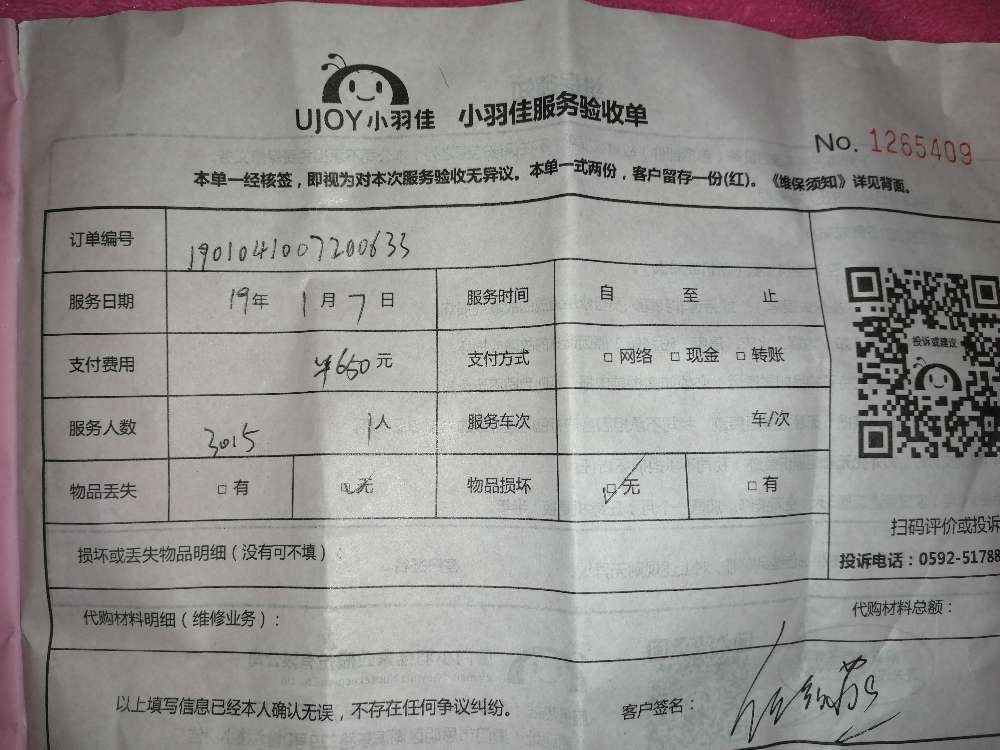 UJOY小羽佳 小羽佳服务验收单
No. 1265409
本单一经核签，即视为对本次服务验收无异议。本单一式两份，客户留存一份(红)。《维保须知》详见背面。
订单编号 1901041007200633
服务日期 19年 1月 7日 服务时间 自 至 止
支付费用 ¥650元 支付方式 □ 网络 □ 现金 □ 转账
服务人数 3015 1人 服务车次 车/次
物品丢失 □ 有 □ 无 物品损坏 □ 无 □ 有
投诉或建议
扫码评价或投诉
损坏或丢失物品明细（没有可不填）：
投诉电话：0592-51788
代购材料明细（维修业务）： 代购材料总额：
以上填写信息已经本人确认无误，不存在任何争议纠纷。 客户签名：